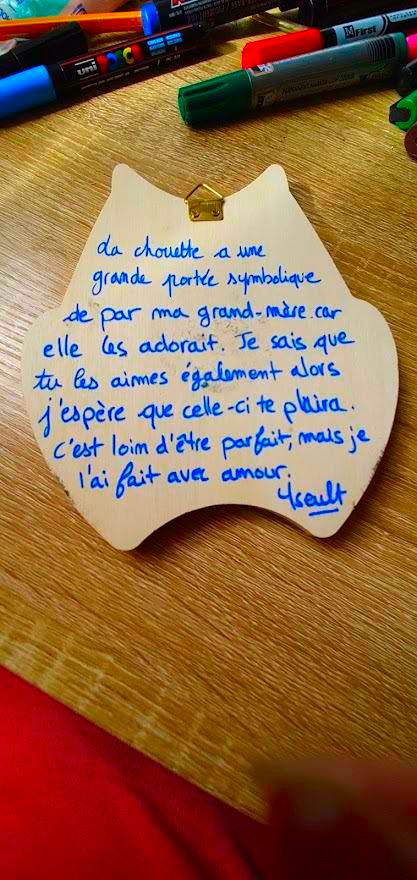 uni
POSCA
First
PERMANENT MARKER
La chouette a une
grande portée symbolique
de par ma grand-mère car
elle les adorait. Je sais que
tu les aimes également alors
j'espère que celle-ci te plaira.
C'est loin d'être parfait, mais je
l'ai fait avec amour.
Yseult